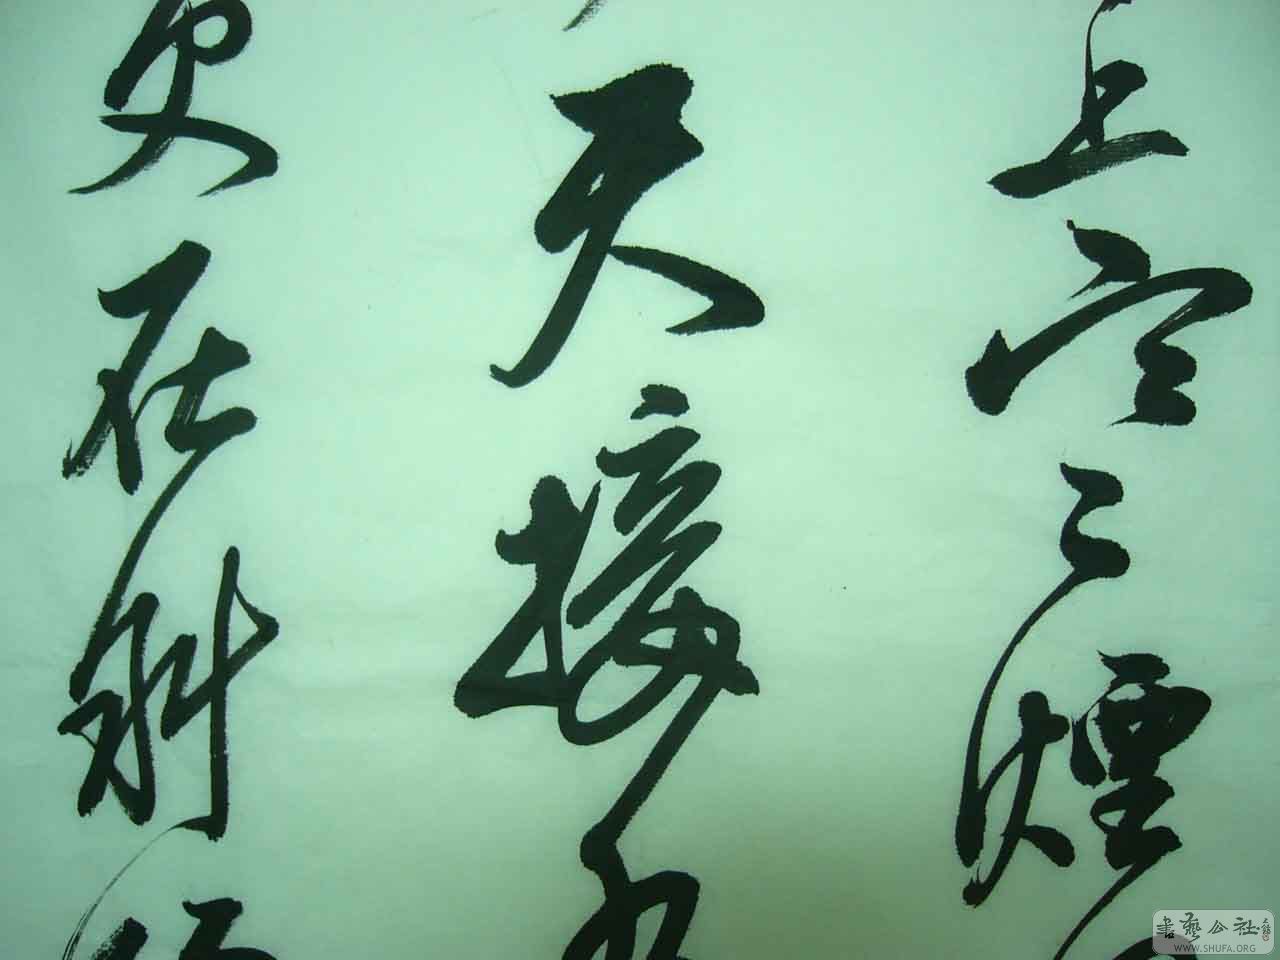 上寒煙
天接水
更在斜
書藝公社
WWW.SHUFA.ORG